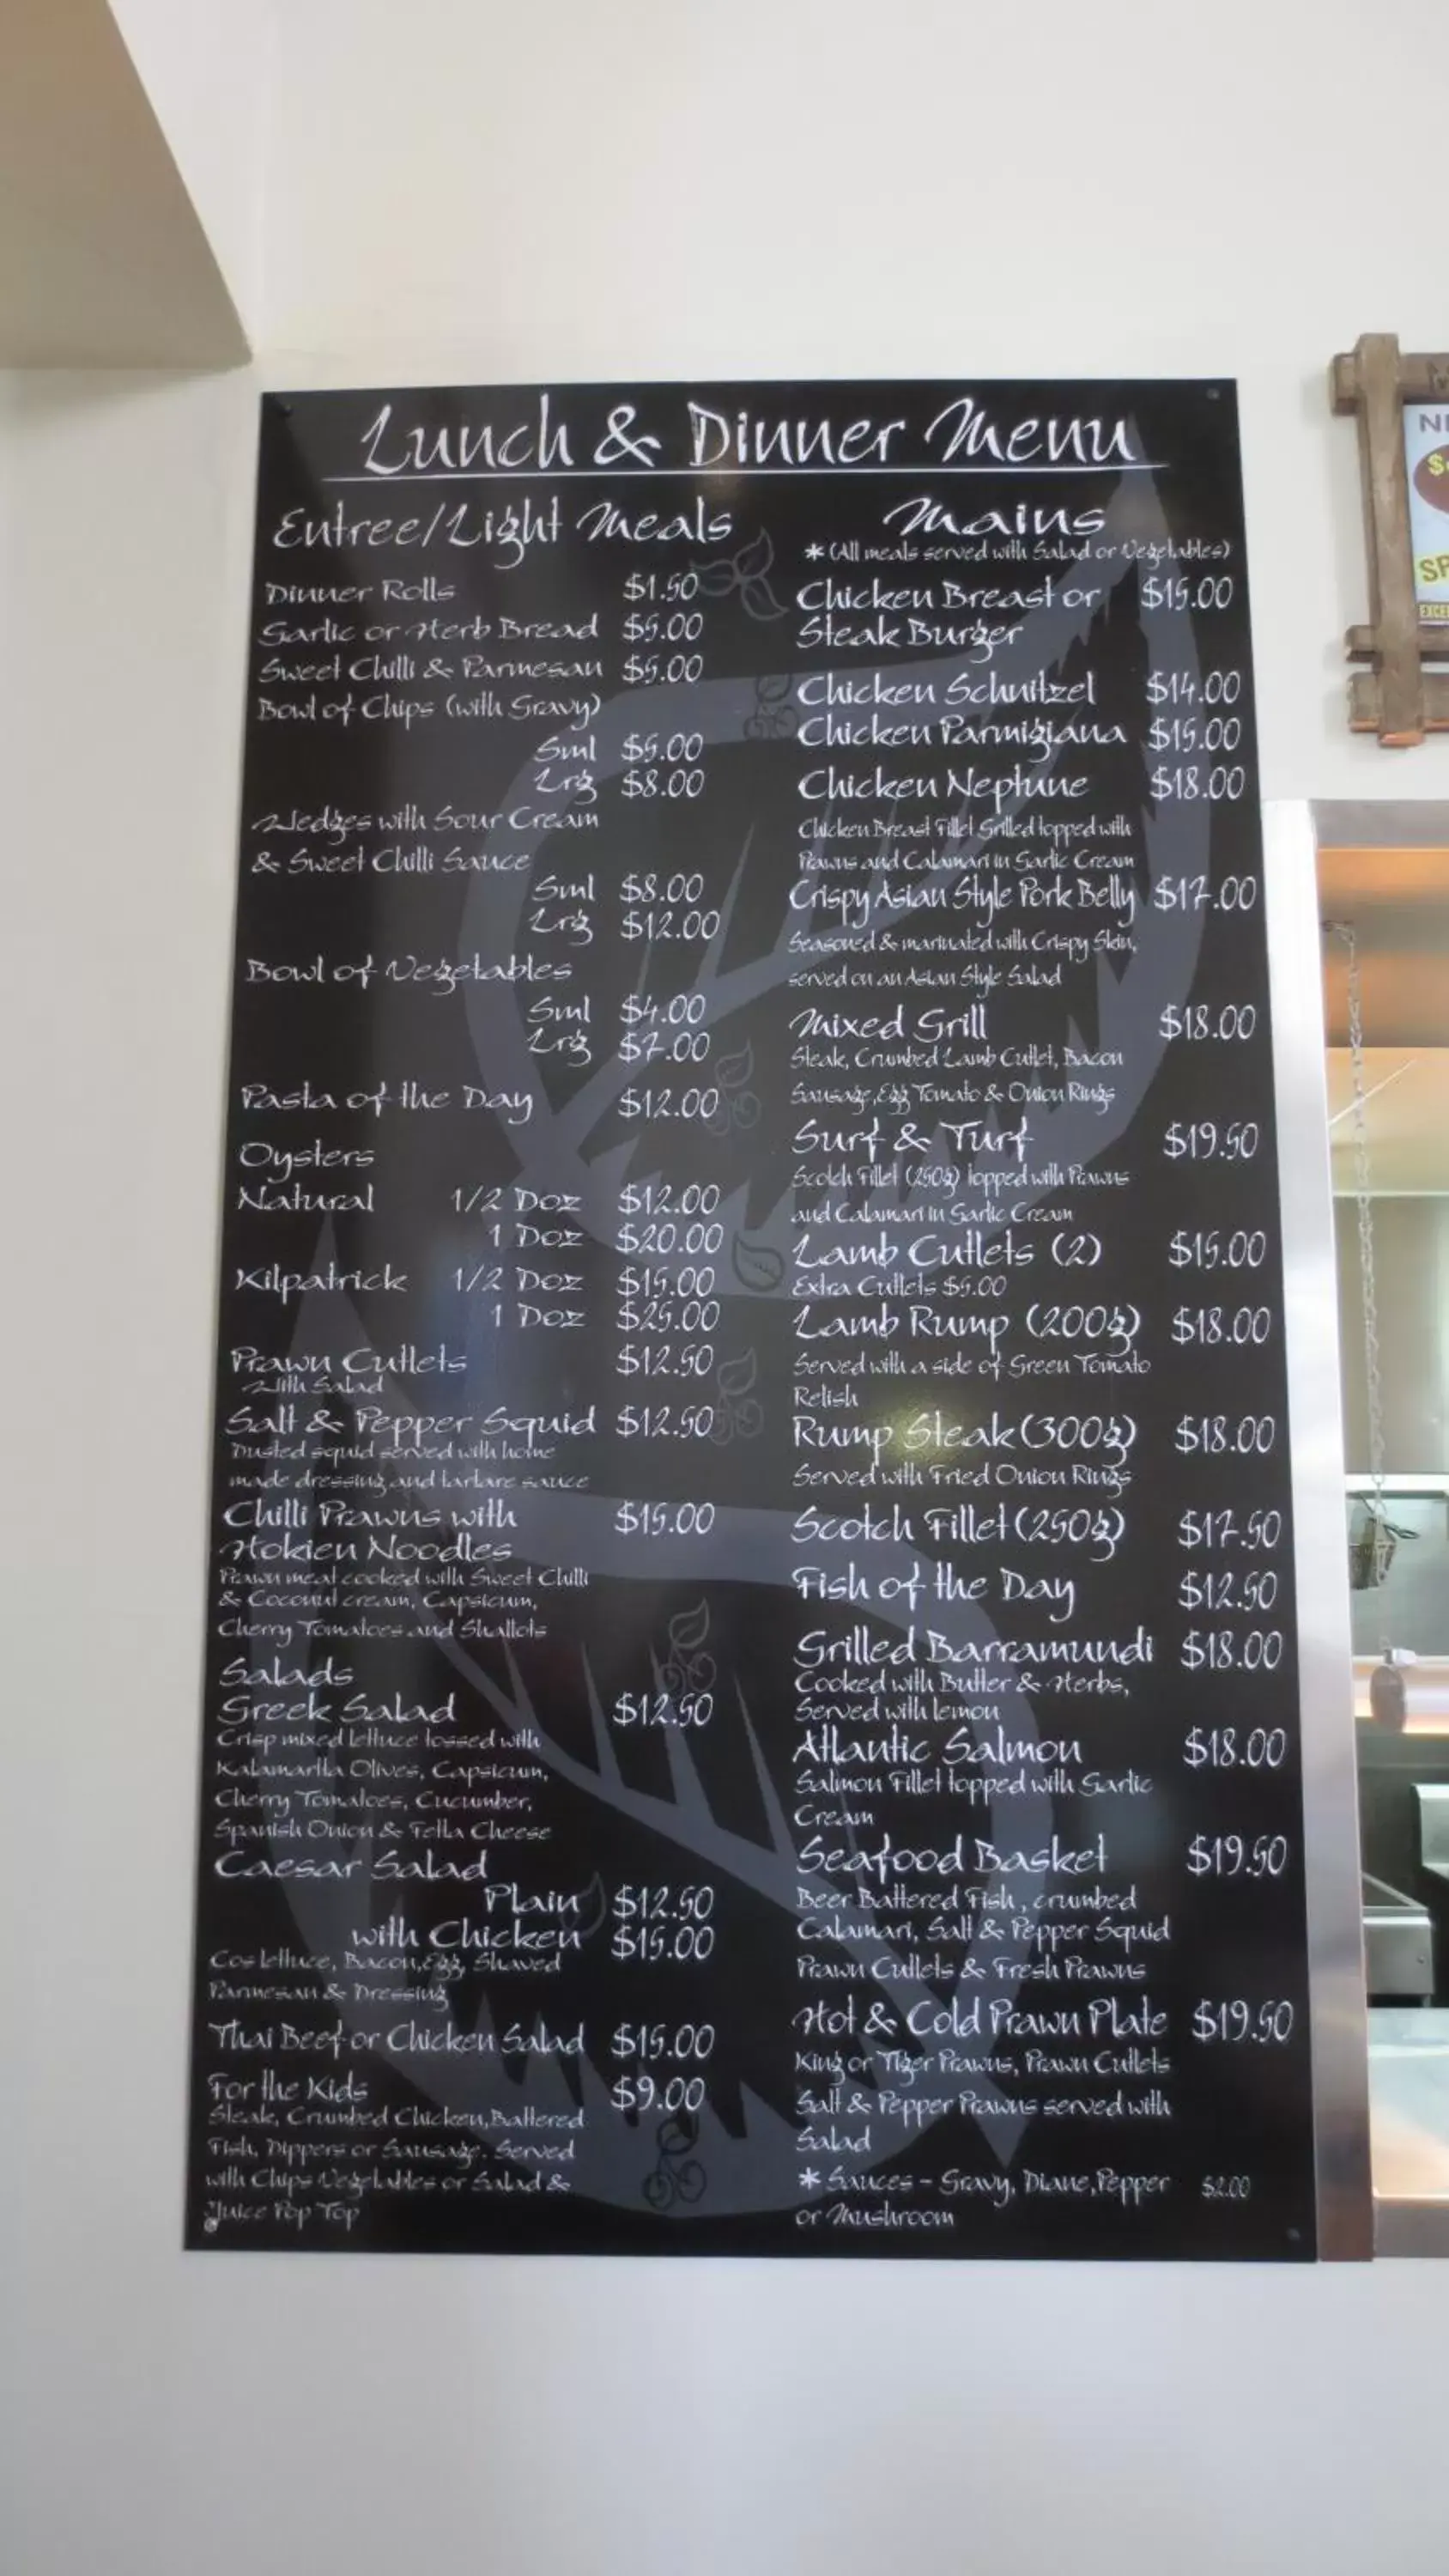 Lunch & Dinner Menu
Entree/Light Meals
Dinner Rolls $1.50
Garlic or Herb Bread $5.00
Sweet Chilli & Parmesan $5.00
Bowl of Chips (with Gravy)
Sml $5.00
Lrg $8.00
Wedges with Sour Cream
& Sweet Chilli Sauce
Sml $8.00
Lrg $12.00
Bowl of Vegetables
Sml $4.00
Lrg $7.00
Pasta of the Day $12.00
Oysters
Natural 1/2 Doz $12.00
1 Doz $20.00
Kilpatrick 1/2 Doz $15.00
1 Doz $25.00
Prawn Cutlets $12.50
With Salad
Salt & Pepper Squid $12.50
Dusted squid served with home
made dressing and tartare sauce
Chilli Prawns with $15.00
Hokien Noodles
Prawn meat cooked with Sweet Chilli
& Coconut cream, Capsicum,
Cherry Tomatoes and Shallots
Salads
Greek Salad $12.50
Crisp mixed lettuce tossed with
Kalamartta Olives, Capsicum,
Cherry Tomatoes, Cucumber,
Spanish Onion & Fetta Cheese
Caesar Salad
Plain $12.50
with Chicken $15.00
Cos lettuce, Bacon,Egg, Shaved
Parmesan & Dressing
Thai Beef or Chicken Salad $15.00
For the Kids $9.00
Steak, Crumbed Chicken,Battered
Fish, Dippers or Sausage. Served
with Chips Vegetables or Salad &
Juice Pop Top
Mains
* (All meals served with Salad or Vegetables)
Chicken Breast or $15.00
Steak Burger
Chicken Schnitzel $14.00
Chicken Parmigiana $15.00
Chicken Neptune $18.00
Chicken Breast Fillet Grilled topped with
Prawns and Calamari in Garlic Cream
Crispy Asian Style Pork Belly $17.00
Seasoned & marinated with Crispy Skin,
served on an Asian Style Salad
Mixed Grill $18.00
Steak, Crumbed Lamb Cutlet, Bacon
Sausage,Egg Tomato & Onion Rings
Surf & Turf $19.50
Scotch Fillet (250g) topped with Prawns
and Calamari in Garlic Cream
Lamb Cutlets (2) $15.00
Extra Cutlets $5.00
Lamb Rump (200g) $18.00
Served with a side of Green Tomato
Relish
Rump Steak (300g) $18.00
Served with Fried Onion Rings
Scotch Fillet (250g) $17.50
Fish of the Day $12.50
Grilled Barramundi $18.00
Cooked with Butter & Herbs,
Served with lemon
Atlantic Salmon $18.00
Salmon Fillet topped with Garlic
Cream
Seafood Basket $19.50
Beer Battered Fish, crumbed
Calamari, Salt & Pepper Squid
Prawn Cutlets & Fresh Prawns
Hot & Cold Prawn Plate $19.50
King or Tiger Prawns, Prawn Cutlets
Salt & Pepper Prawns served with
Salad
* Sauces - Gravy, Diane,Pepper $2.00
or Mushroom